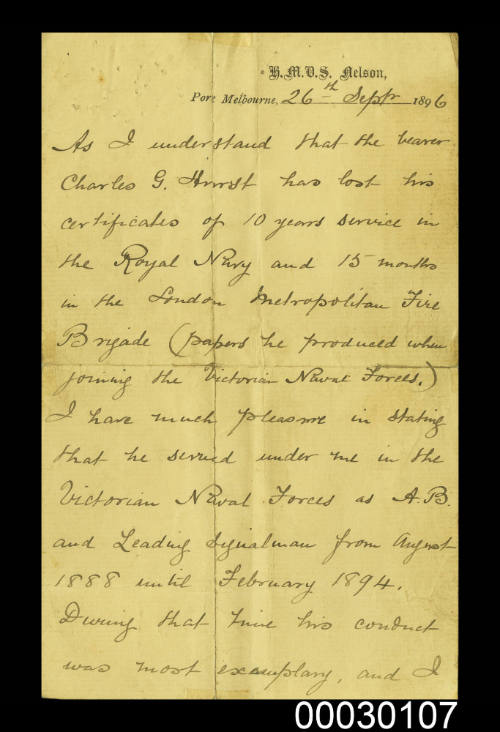 H.M.V.S. Nelson,
Port Melbourne, 26th Septr 1896
As I understand that the bearer
Charles G. Hurst has lost his
certificates of 10 years service in
the Royal Navy and 15 months
in the London Metropolitan Fire
Brigade (papers he produced when
joining the Victorian Naval Forces.)
I have much pleasure in stating
that he served under me in the
Victorian Naval Forces as A.B.
and Leading Signalman from August
1888 until February 1894.
During that time his conduct
was most exemplary, and I
00030107